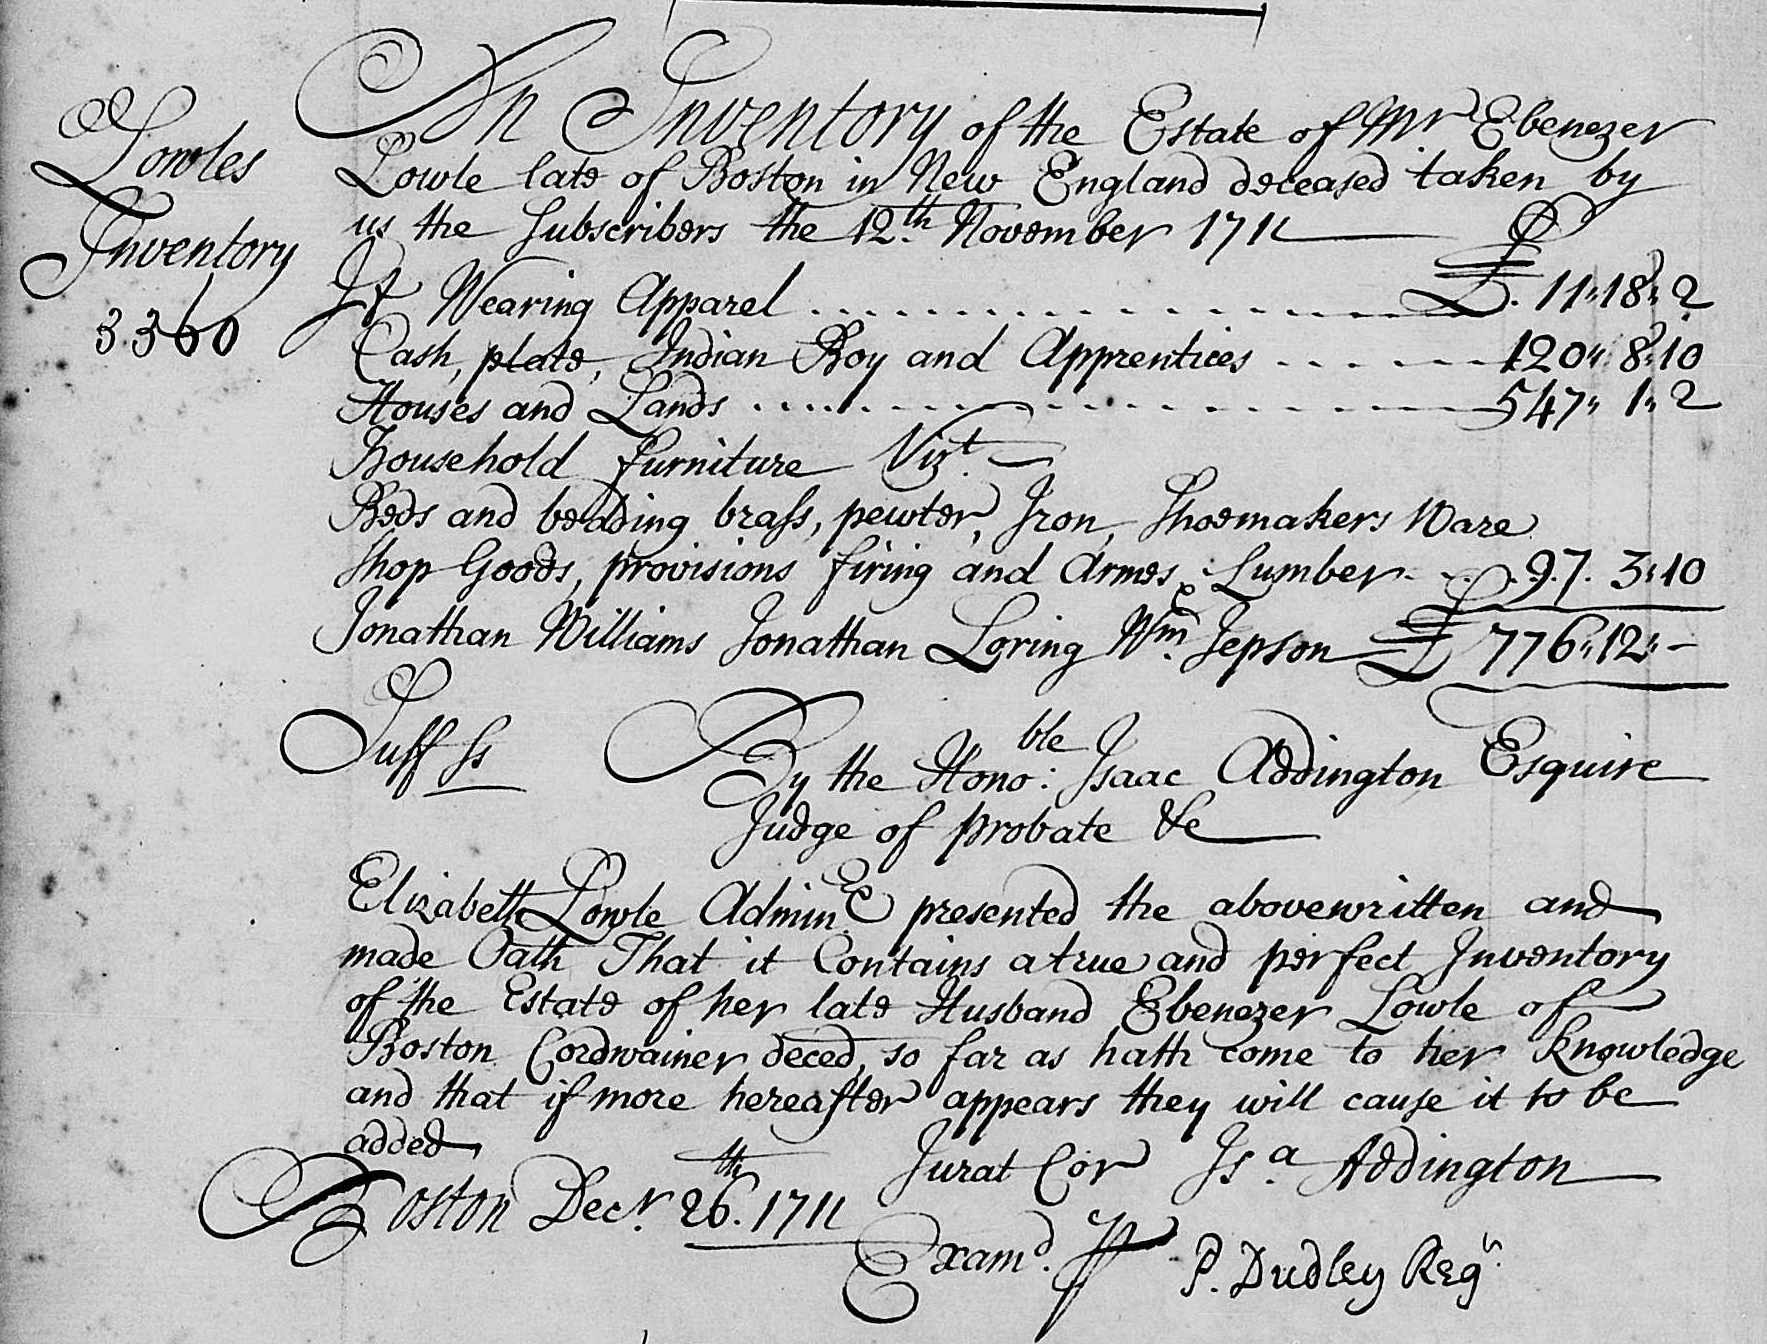 Lowles
Inventory
3360
An Inventory of the Estate of Mr Ebenezer
Lowle late of Boston in New England deceased taken by
us the Subscribers the 12.th November 1711
It Wearing Apparel £. 11"18"2
Cash, plate, Indian Boy and Apprentices 120"8"10
Houses and Lands 547"1"2
Household furniture Vizt.
Beds and bedding brass, pewter, Iron, Shoemakers Ware
Shop Goods, provisions firing and Armes & Lumber 97. 3"10
Jonathan Williams Jonathan Loring Wm. Jepson £ 776"12"-
Suff ss By the Hono:ble Isaac Addington Esquire
Judge of probate &c
Elizabeth Lowle Admin. presented the abovewritten and
made Oath That it Contains a true and perfect Inventory
of the Estate of her late Husband Ebenezer Lowle of
Boston Cordwainer deced, so far as hath come to her knowledge
and that if more hereafter appears they will cause it to be
added
Jurat Cor Isa. Addington
Boston Decr. 26th. 1711
Examd. P. Dudley Regr.